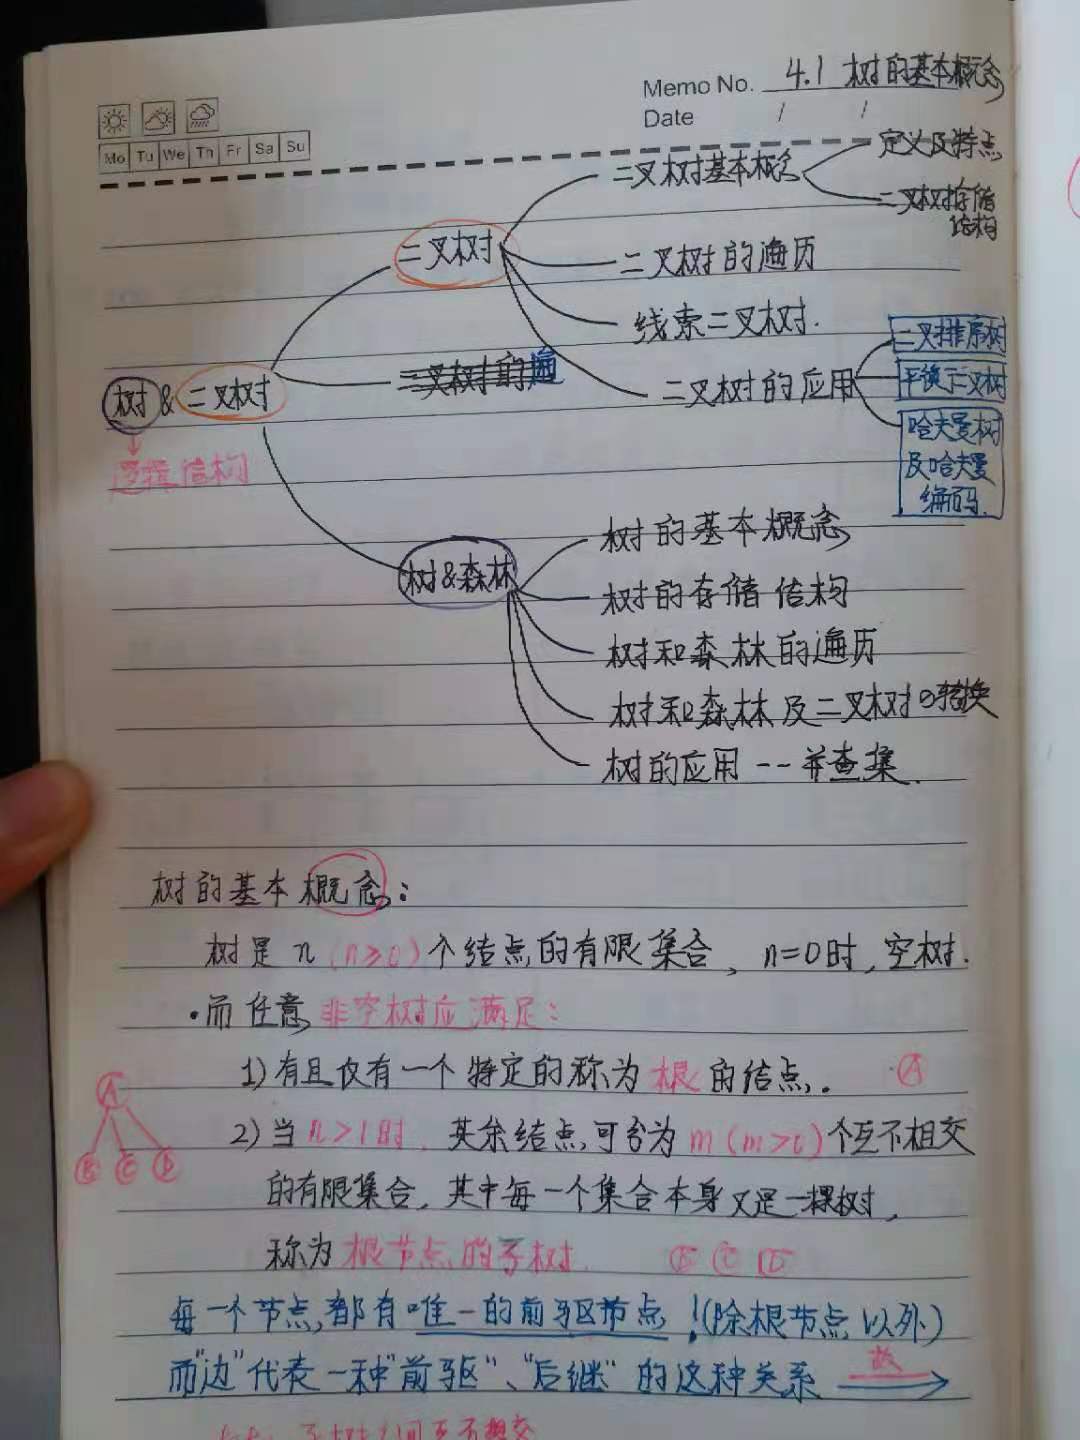 Memo No. 4.1 树的基本概念
Date / /
Mo Tu We Th Fr Sa Su
定义及特点
二叉树基本概念
二叉树存储
结构
二叉树
二叉树的遍历
线索二叉树.
二叉排序树
二叉树的遍
树 & 二叉树
二叉树的应用
平衡二叉树
哈夫曼树
及哈夫曼
编码.
逻辑结构
树的基本概念
树&森林
树的存储结构
树和森林的遍历
树和森林及二叉树的转换
树的应用 -- 并查集.
树的基本概念:
树是 n (n≥0) 个结点的有限集合, n=0时, 空树.
·而任意非空树应满足:
1) 有且仅有一个特定的称为根的结点. A
A
2) 当 n>1时, 其余结点可分为 m (m>0) 个互不相交
B C D
的有限集合, 其中每一个集合本身又是一棵树,
称为根节点的子树. B C D
每一个节点都有唯一的前驱节点!(除根节点以外)
而"边"代表一种"前驱"、"后继"的这种关系 故
子树之间互不相交